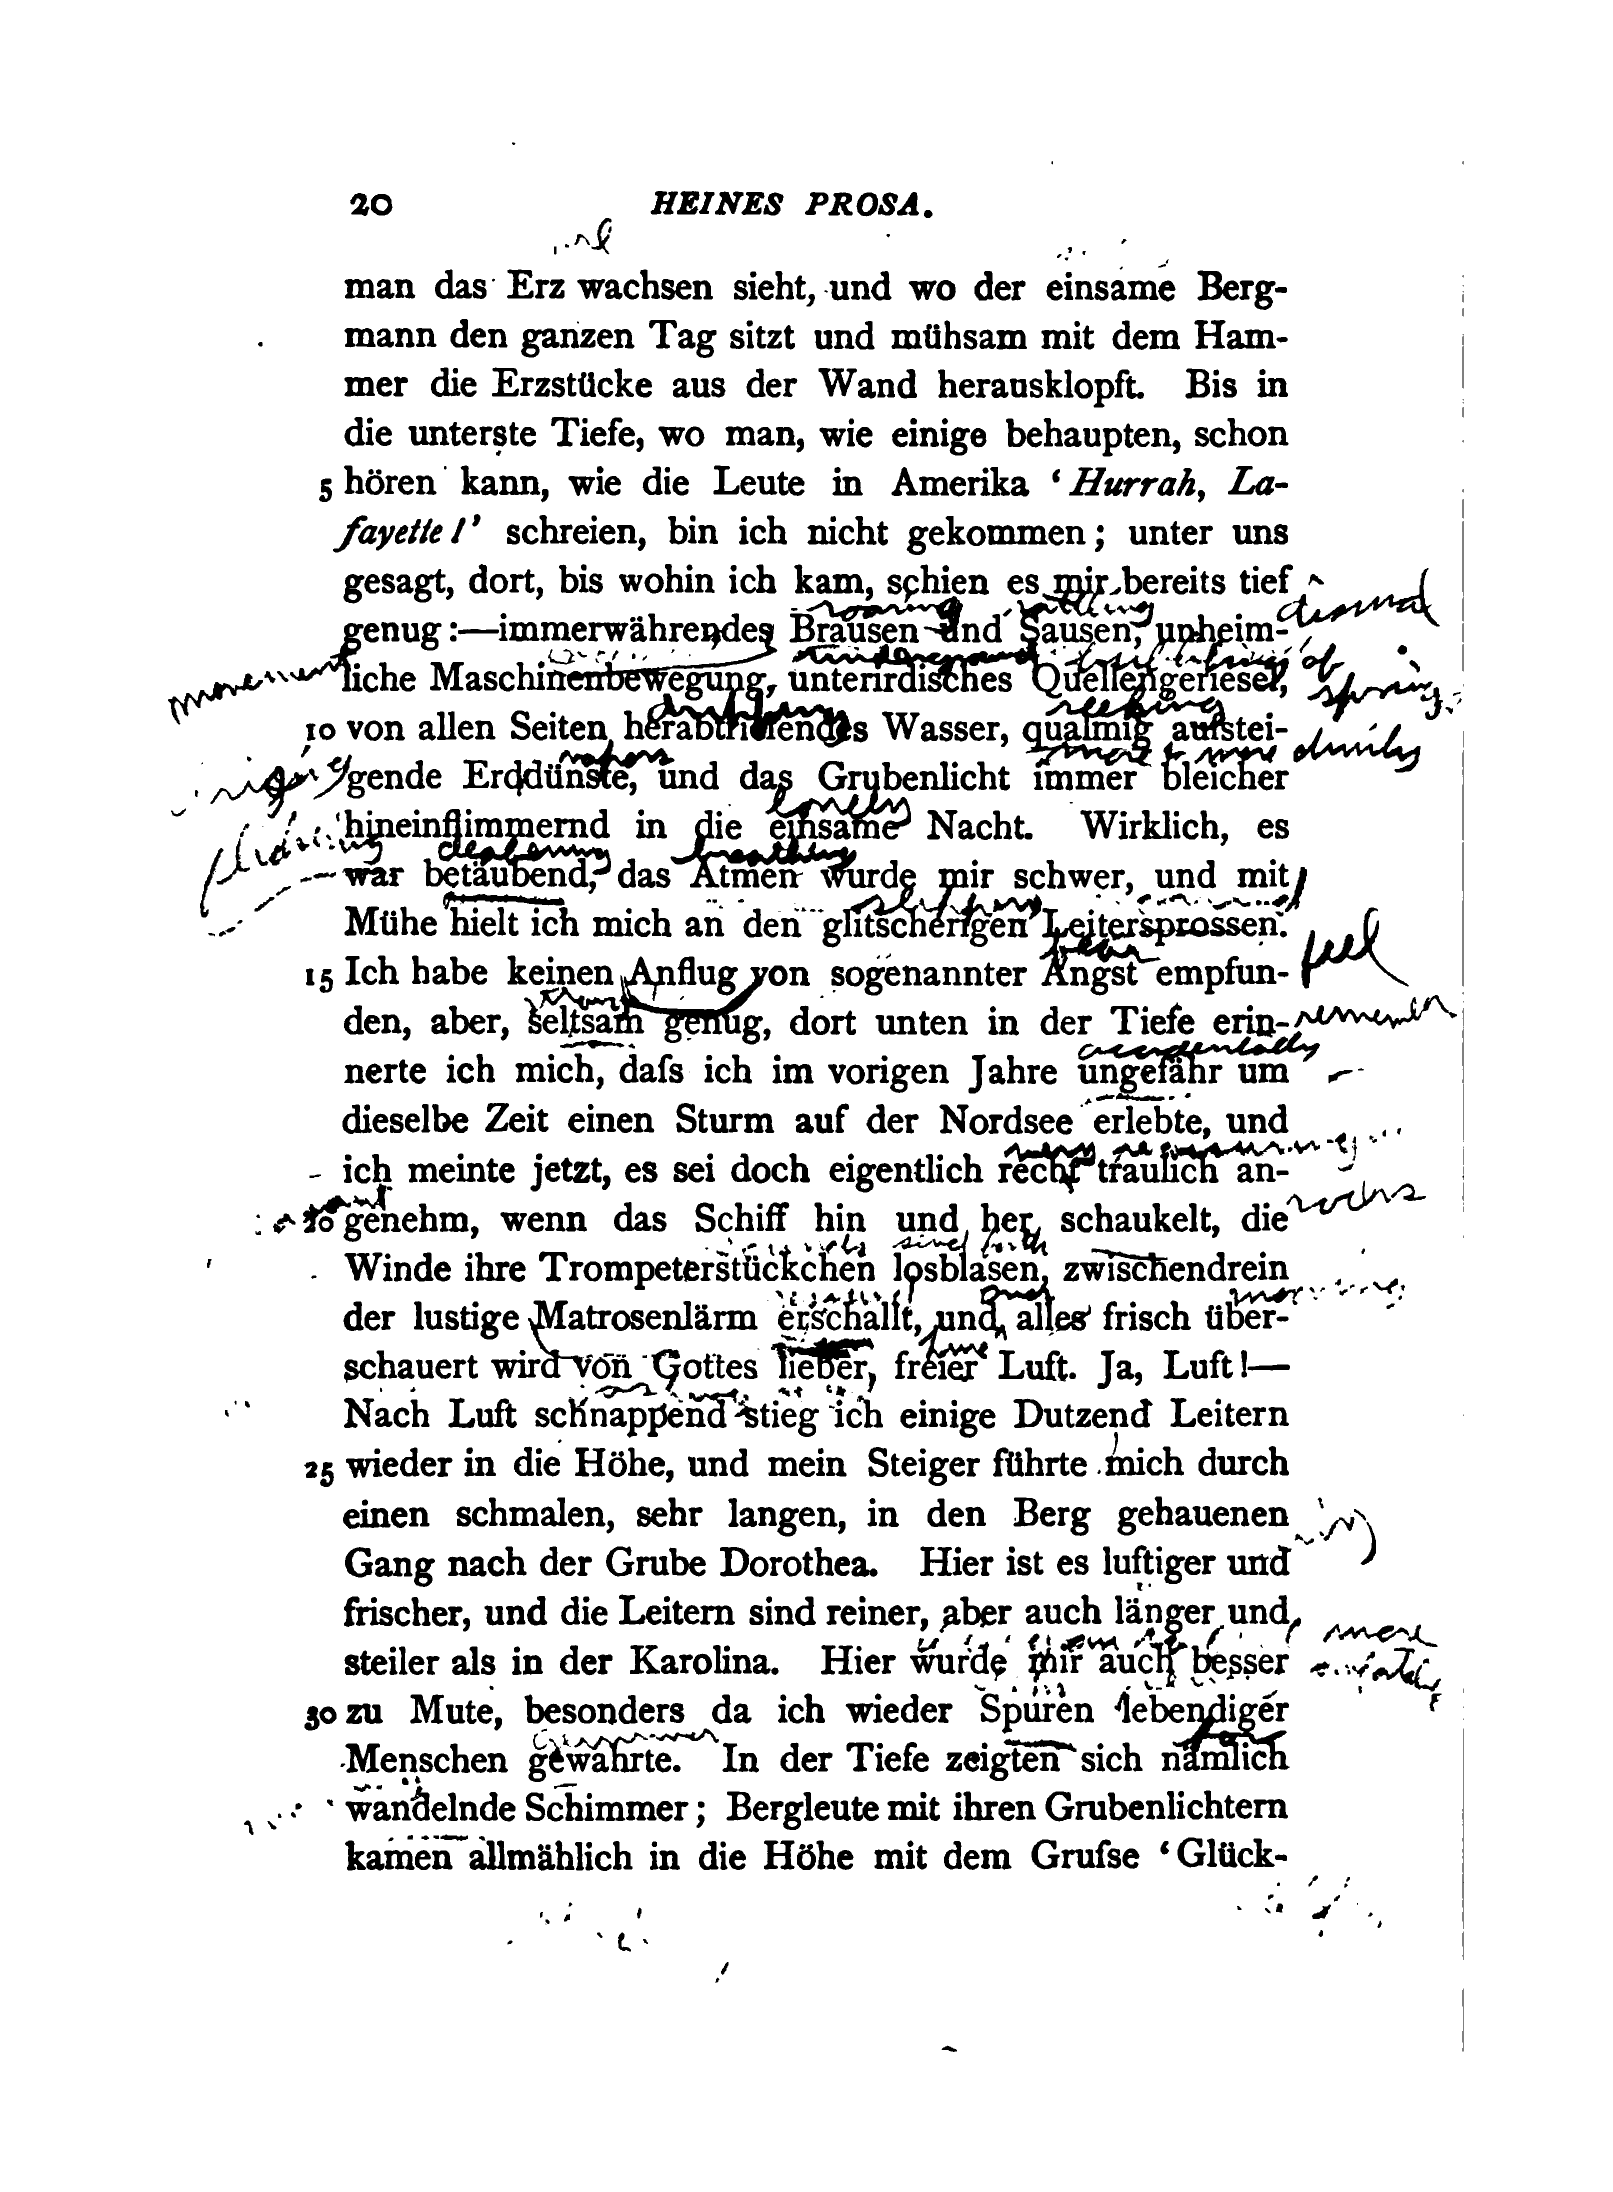 20 HEINES PROSA.
man das Erz wachsen sieht, und wo der einsame Berg-
mann den ganzen Tag sitzt und mühsam mit dem Ham-
mer die Erzstücke aus der Wand herausklopft. Bis in
die unterste Tiefe, wo man, wie einige behaupten, schon
5 hören kann, wie die Leute in Amerika ‘Hurrah, La-
fayette!’ schreien, bin ich nicht gekommen; unter uns
gesagt, dort, bis wohin ich kam, schien es mir bereits tief
roaring rattling dismal
genug:—immerwährendes Brausen und Sausen, unheim-
movement underground of
liche Maschinenbewegung, unterirdisches Quellengeriesel,
springs
dripping reeking
10 von allen Seiten herabtriefendes Wasser, qualmig aufstei-
rising vapors more & more dimly
gende Erddünste, und das Grubenlicht immer bleicher
lonely
hineinflimmernd in die einsame Nacht. Wirklich, es
deafening breathing
war betäubend, das Atmen wurde mir schwer, und mit
slippery
Mühe hielt ich mich an den glitscherigen Leitersprossen.
fear feel
15 Ich habe keinen Anflug von sogenannter Angst empfun-
remember
den, aber, seltsam genug, dort unten in der Tiefe erin-
accidentally
nerte ich mich, daſs ich im vorigen Jahre ungefähr um
dieselbe Zeit einen Sturm auf der Nordsee erlebte, und
ich meinte jetzt, es sei doch eigentlich recht traulich an-
rocks
20 genehm, wenn das Schiff hin und her schaukelt, die
Winde ihre Trompeterstückchen losblasen, zwischendrein
der lustige Matrosenlärm erschallt, und alles frisch über-
schauert wird von Gottes lieber, freier Luft. Ja, Luft!—
Nach Luft schnappend stieg ich einige Dutzend Leitern
25 wieder in die Höhe, und mein Steiger führte mich durch
einen schmalen, sehr langen, in den Berg gehauenen
Gang nach der Grube Dorothea. Hier ist es luftiger und
frischer, und die Leitern sind reiner, aber auch länger und
more
steiler als in der Karolina. Hier wurde mir auch besser
30 zu Mute, besonders da ich wieder Spuren lebendiger
Menschen gewahrte. In der Tiefe zeigten sich nämlich
wandelnde Schimmer; Bergleute mit ihren Grubenlichtern
kamen allmählich in die Höhe mit dem Gruſse ‘Glück-